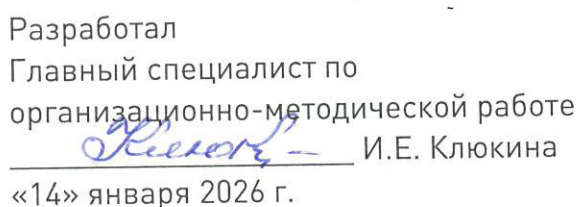 Разработал
Главный специалист по
организационно-методической работе
И.Е. Клюкина
«14» января 2026 г.